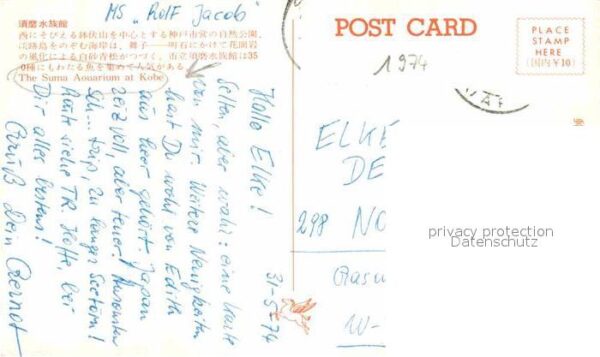 MS „Rolf Jacob"
須磨水族館
西にそびえる鉢伏山を中心とする神戸市営の自然公園、
淡路島をのぞむ海岸は、舞子——明石にかけて花崗岩
の風化による白砂青松がつづく。市立須磨水族館は35
0種にもわたる魚を集めて人気がある。
The Suma Aquarium at Kobe
POST CARD
PLACE
STAMP
HERE
(国内¥10)
1974
31-5-74
Hallo Elke!
Selten, aber wahr: eine Karte
von mir. Weitere Neuigkeiten
hast Du wohl von Edith
aus hier gehört. Japan
reizvoll, aber teuer! Ansonsten
ich... trip, zu lange Seetörn!
Heute siehe TR. Hoffe, bei
Dir alles bestens!
Gruß Dein Gernot
ELKE
DE
298 NO
W-
privacy protection
Datenschutz